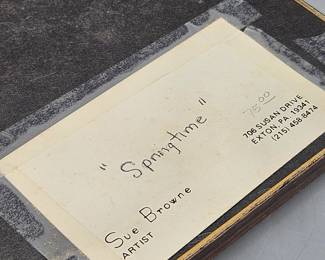 "Springtime"
75.00
Sue Browne
ARTIST
706 SUSAN DRIVE
EXTON, PA. 19341
(215) 458 8474